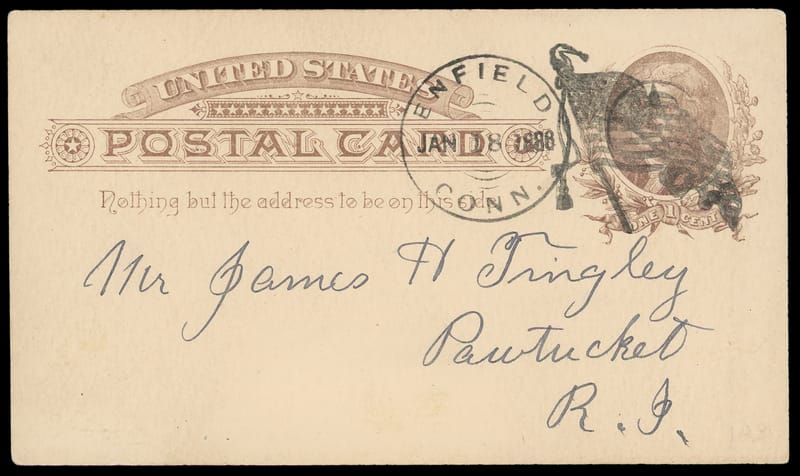 UNITED STATES
POSTAL CARD
Nothing but the address to be on this side.
ENFIELD
JAN 18 1888
CONN.
ONE 1 CENT
Mr James H Tingley
Pawtucket
R. I.